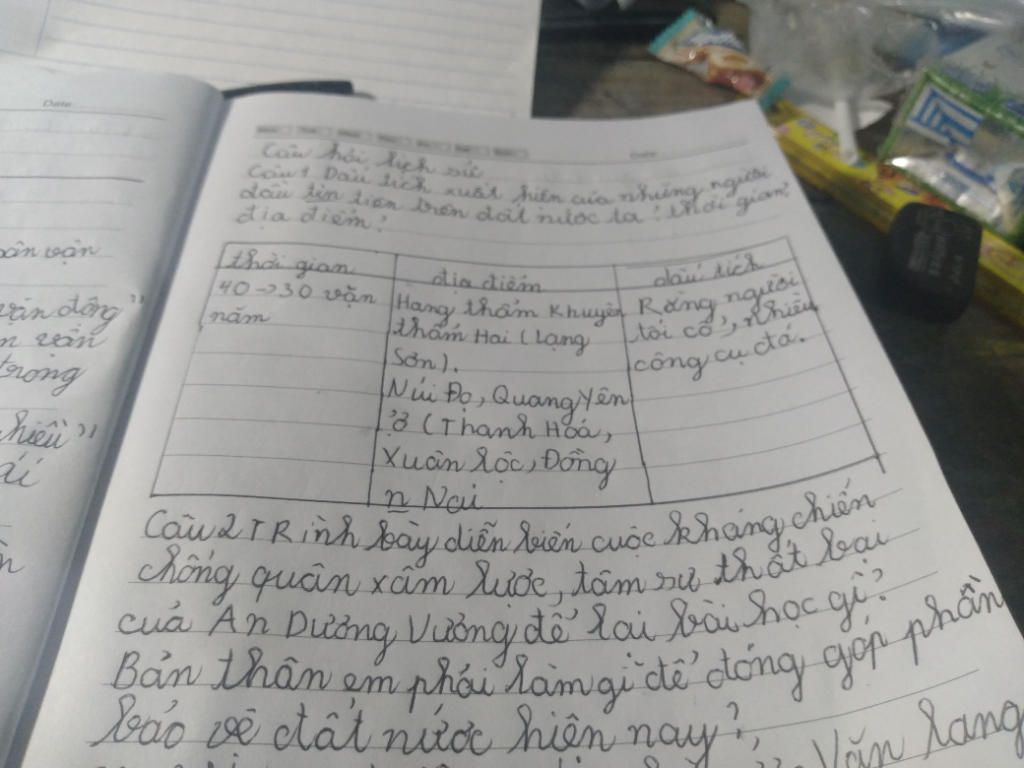 Date
ân vận
vận đông"
n vận
trọng
hiếu"
ái
n
Date
Câu hỏi lịch sử
Câu 1 Dấu tích xuất hiện của những người
đầu tin tiên trên đất nước ta? thời gian?
địa điểm?
thời gian
địa điểm
dấu tích
40->30 vặn
năm
Hang thẩm Khuyên
thẩm Hai (Lạng
Sơn).
Núi Đọ, Quang Yên
ở (Thanh Hoá,
Xuân Lộc, Đồng
n Nai
Răng người
tôi cổ, nhiều
công cụ đá.
Câu 2 TRình bày diễn biến cuộc kháng chiến
chống quân xâm lược, tâm sư thất bại
của An Dương Vương để lại bài học gì?
Bản thân em phải làm gì để đóng góp phần
bảo vệ đất nước hiện nay?
Văn Lang